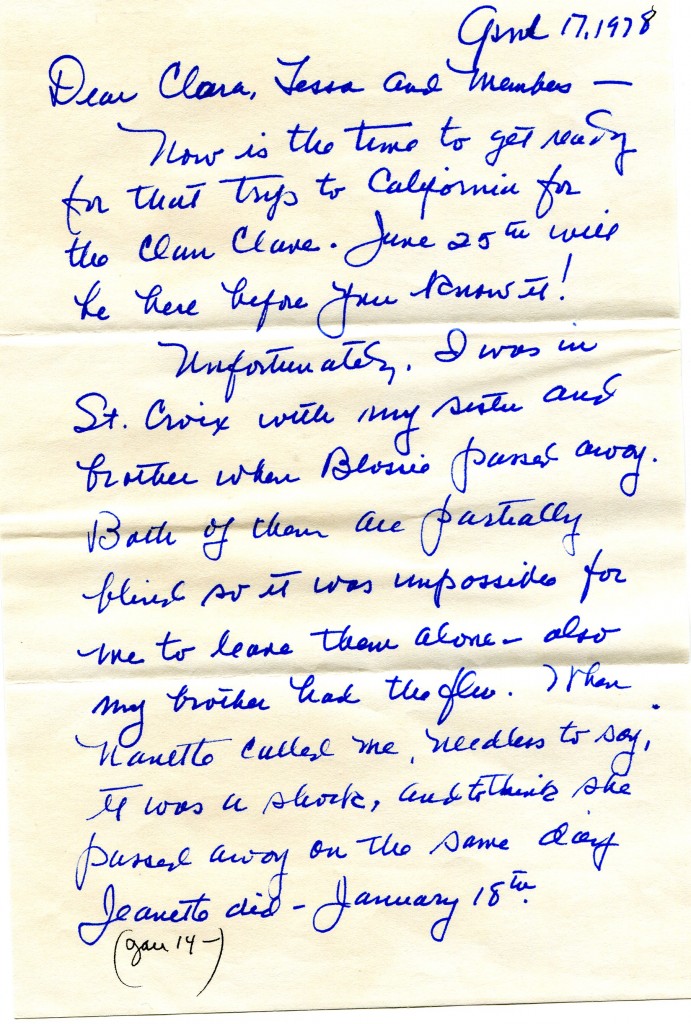 April 17, 1978
Dear Clara, Tessa and Members —
Now is the time to get ready
for that trip to California for
the Clan Clave. June 25th will
be here before you know it!
Unfortunately, I was in
St. Croix with my sister and
brother when Blossie passed away.
Both of them are partially
blind so it was impossible for
me to leave them alone – also
my brother had the flu. When
Nanette called me, needless to say,
it was a shock, and to think she
passed away on the same day
Jeanette did – January 18th.
(Jan 14 –)